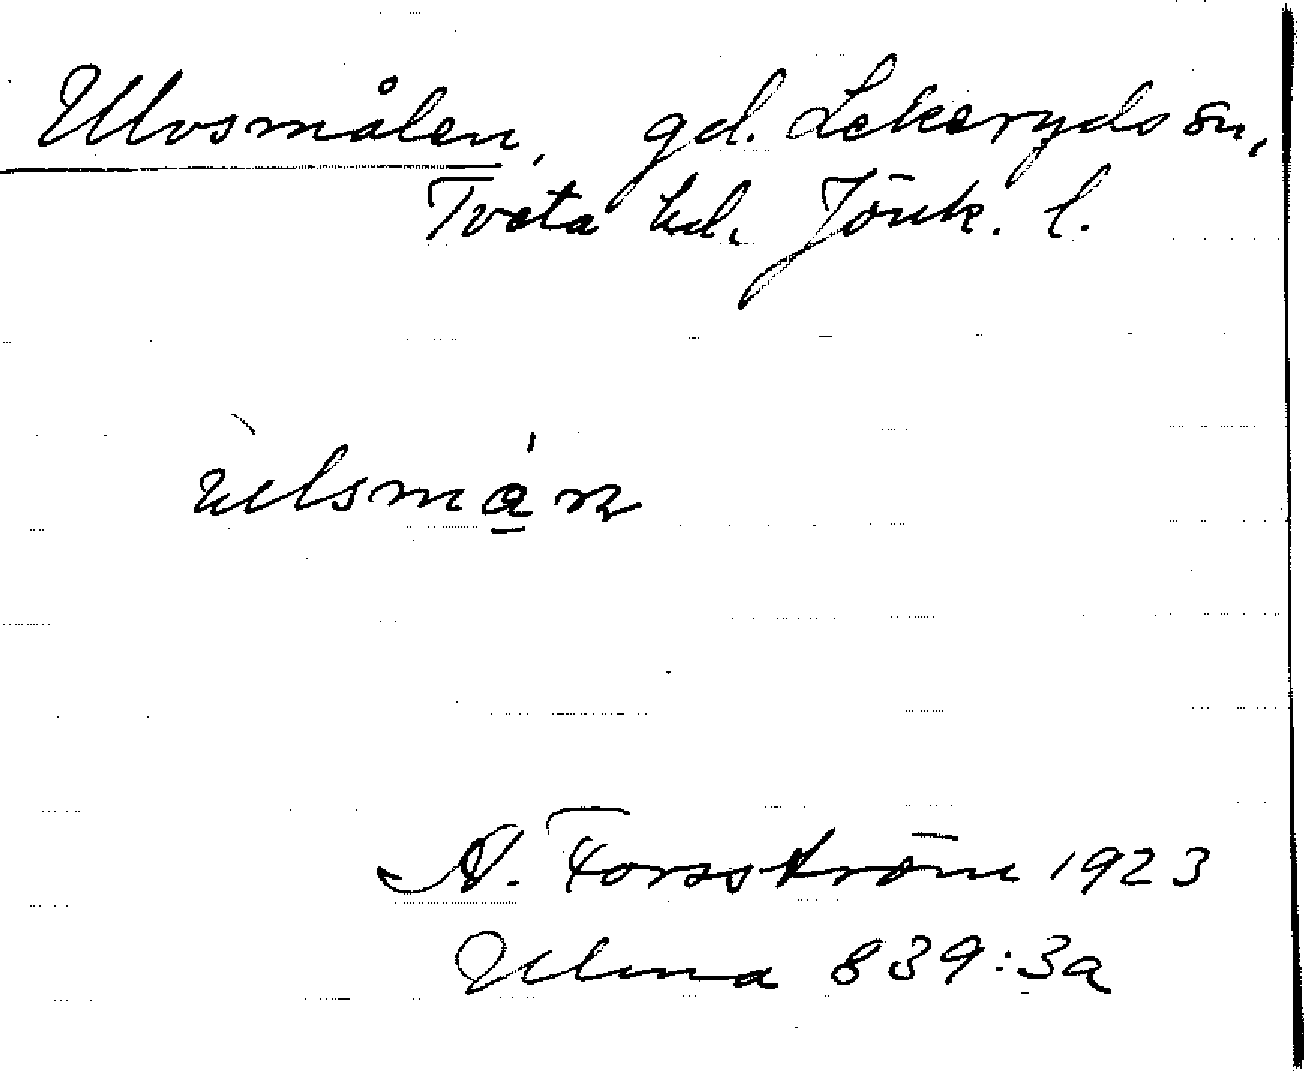 Ulvsmålen, gd. Lekeryds sn,
Tveta hd. Jönk. l.
ùlsmá̱n
A. Forsström 1923
Ulma 839:3a